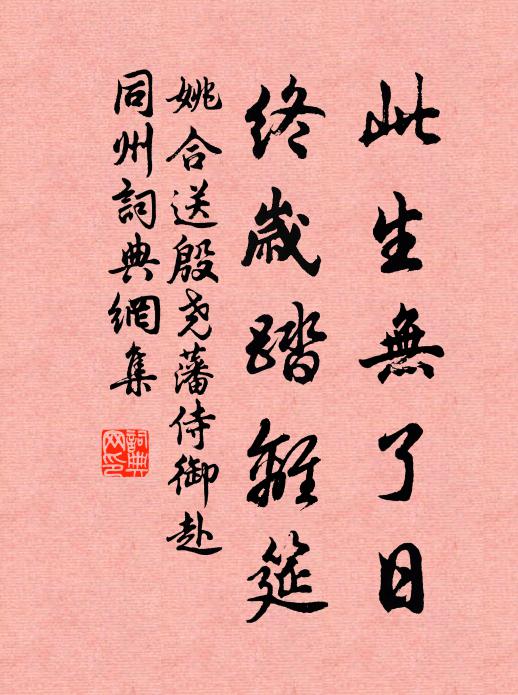 此生無了日
終歲踏離筵
姚合送殷堯藩侍御赴
同州詞典網集
詞典
网印